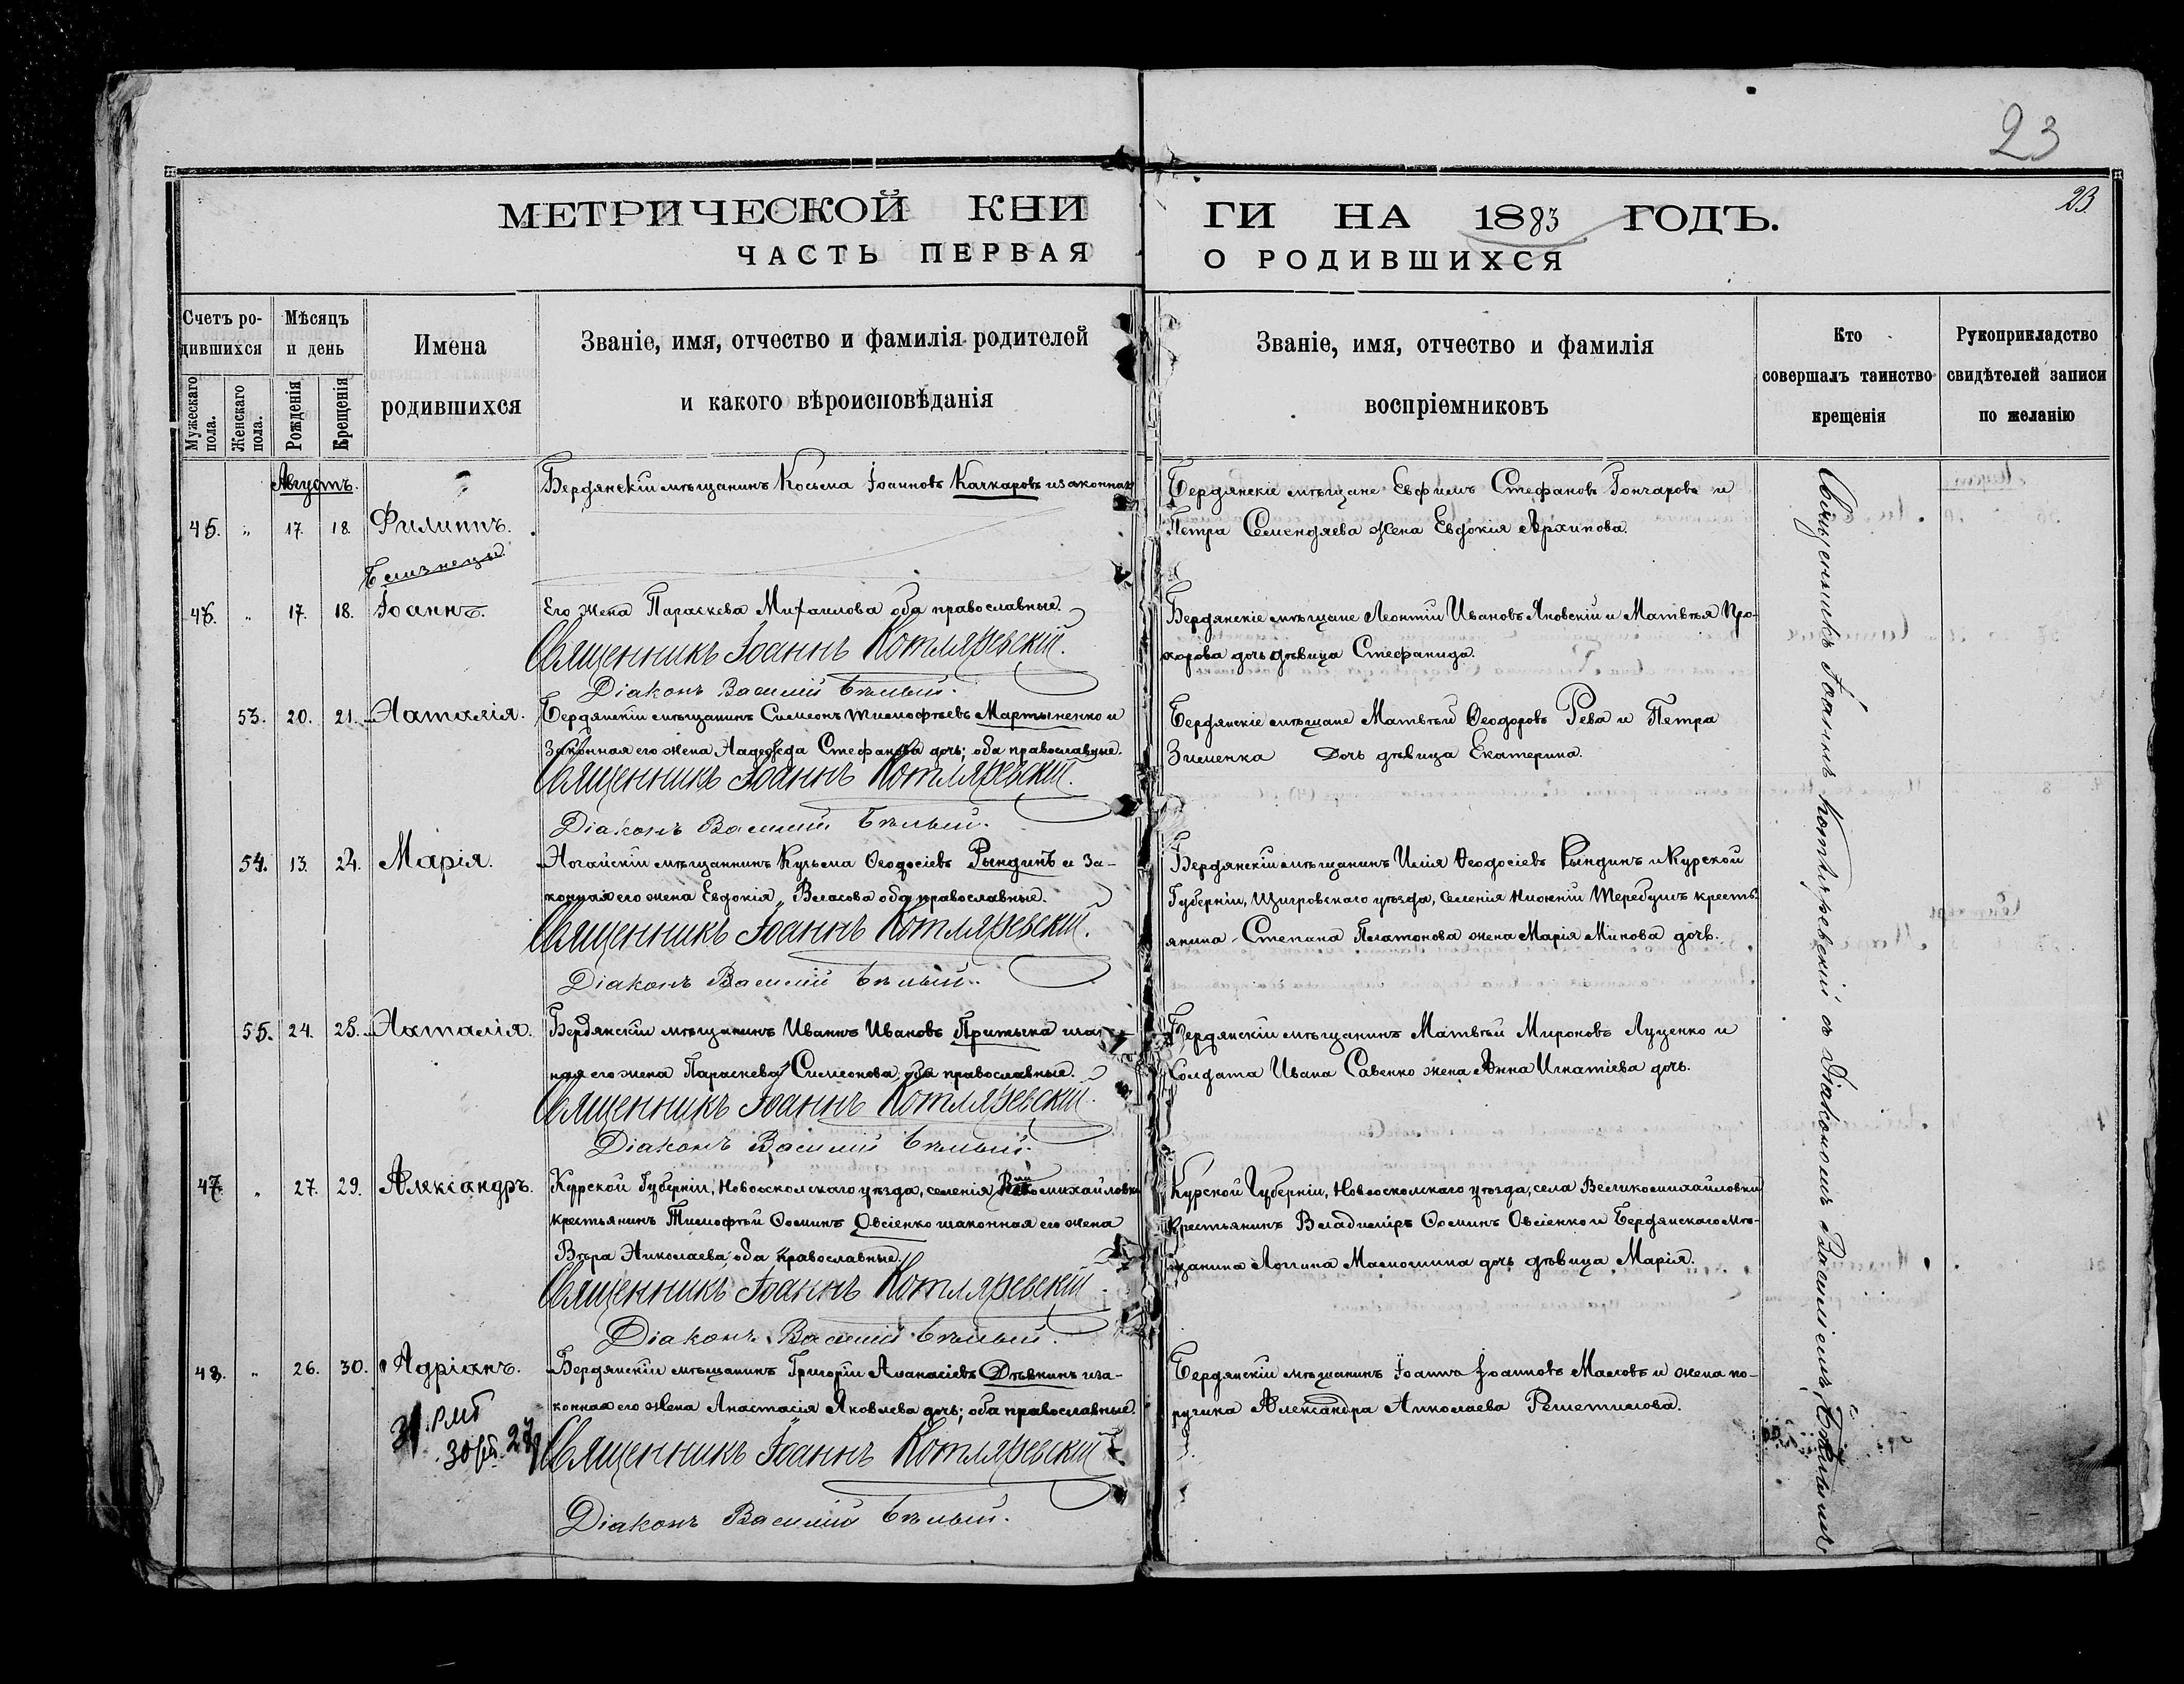 23
23.
МЕТРИЧЕСКОЙ КНИ ГИ НА 1883 ГОДЪ.
ЧАСТЬ ПЕРВАЯ О РОДИВШИХСЯ
Счетъ ро-
дившихся
Мужескаго пола.
Женскаго пола.
Мѣсяцъ
и день
Рожденія
Крещенія
Имена
родившихся
Званіе, имя, отчество и фамилія родителей
и какого вѣроисповѣданія
Званіе, имя, отчество и фамилія
воспріемниковъ
Кто
совершалъ таинство
крещенія
Рукоприкладство
свидѣтелей записи
по желанію
Августъ.
45. " 17. 18. Филиппъ.
Близнецы
Бердянскій мѣщанинъ Косьма Іоанновъ Качкаровъ
Бердянскіе мѣщане Евфимъ Стефановъ Гончаровъ и
Петра Семендяева жена Евдокія Архипова.
46. " 17. 18. Іоаннъ.
Его жена Параскева Михаилова оба православные.
Священникъ Іоаннъ Котляревскій.
Діаконъ Василій Бѣлый.
Бердянскіе мѣщане Леонтій Ивановъ Яновскій и Матвѣя Про-
хорова дочь дѣвица Стефанида.
53. 20. 21. Наталія.
Бердянскій мѣщанинъ Симеонъ Тимофѣевъ Мартыненко и
законная его жена Надежда Стефанова дочь; оба православные.
Священникъ Іоаннъ Котляревскій.
Діаконъ Василій Бѣлый.
Бердянскіе мѣщане Матвѣй Ѳеодоровъ Рева и Петра
Зименка дочь дѣвица Екатерина.
54. 13. 24. Марія.
Ногайскій мѣщаннинъ Кузьма Ѳеодосіевъ Рындинъ и за-
конная его жена Евдокія Власова оба православные.
Священникъ Іоаннъ Котляревскій.
Діаконъ Василій Бѣлый.
Бердянскій мѣщанинъ Илія Ѳеодосіевъ Рындинъ и Курской
Губерніи, Щигровскаго уѣзда, селенія Нижній Теребужъ кресть-
янина Степана Платонова жена Марія Минова дочь.
55. 24. 25. Наталія.
Бердянскій мѣщанинъ Иванъ Ивановъ Притыка
ная его жена Параскева Симеонова, оба православные.
Священникъ Іоаннъ Котляревскій.
Діаконъ Василій Бѣлый.
Бердянскій мѣщанинъ Матвѣй Мироновъ Луценко и
Солдата Ивана Савенко жена Анна Игнатіева дочь.
47. " 27. 29. Александръ.
Курской Губерніи, Новооскольскаго уѣзда, селенія
крестьянинъ Тимофѣй Ѳоминъ Овсіенко и законная его жена
Вѣра Николаева, оба православные.
Священникъ Іоаннъ Котляревскій.
Діаконъ Василій Бѣлый.
Курской Губерніи, Новооскольскаго уѣзда, села Великомихайловки
крестьянинъ Владиміръ Ѳоминъ Овсіенко и Бердянскаго мѣ-
щанина Логгина дочь дѣвица Марія.
48. " 26. 30. Адріанъ.
Бердянскій мѣщанинъ Григорій Аѳанасіевъ Дѣвкинъ и за-
конная его жена Анастасія Яковлева дочь; оба православные.
Священникъ Іоаннъ Котляревскій.
Діаконъ Василій Бѣлый.
Бердянскій мѣщанинъ Іоаннъ Іоанновъ Масловъ и жена по-
ручика Александра Николаева Решетилова.
Священникъ Іоаннъ Котляревскій съ Діакономъ Василіемъ Бѣлымъ